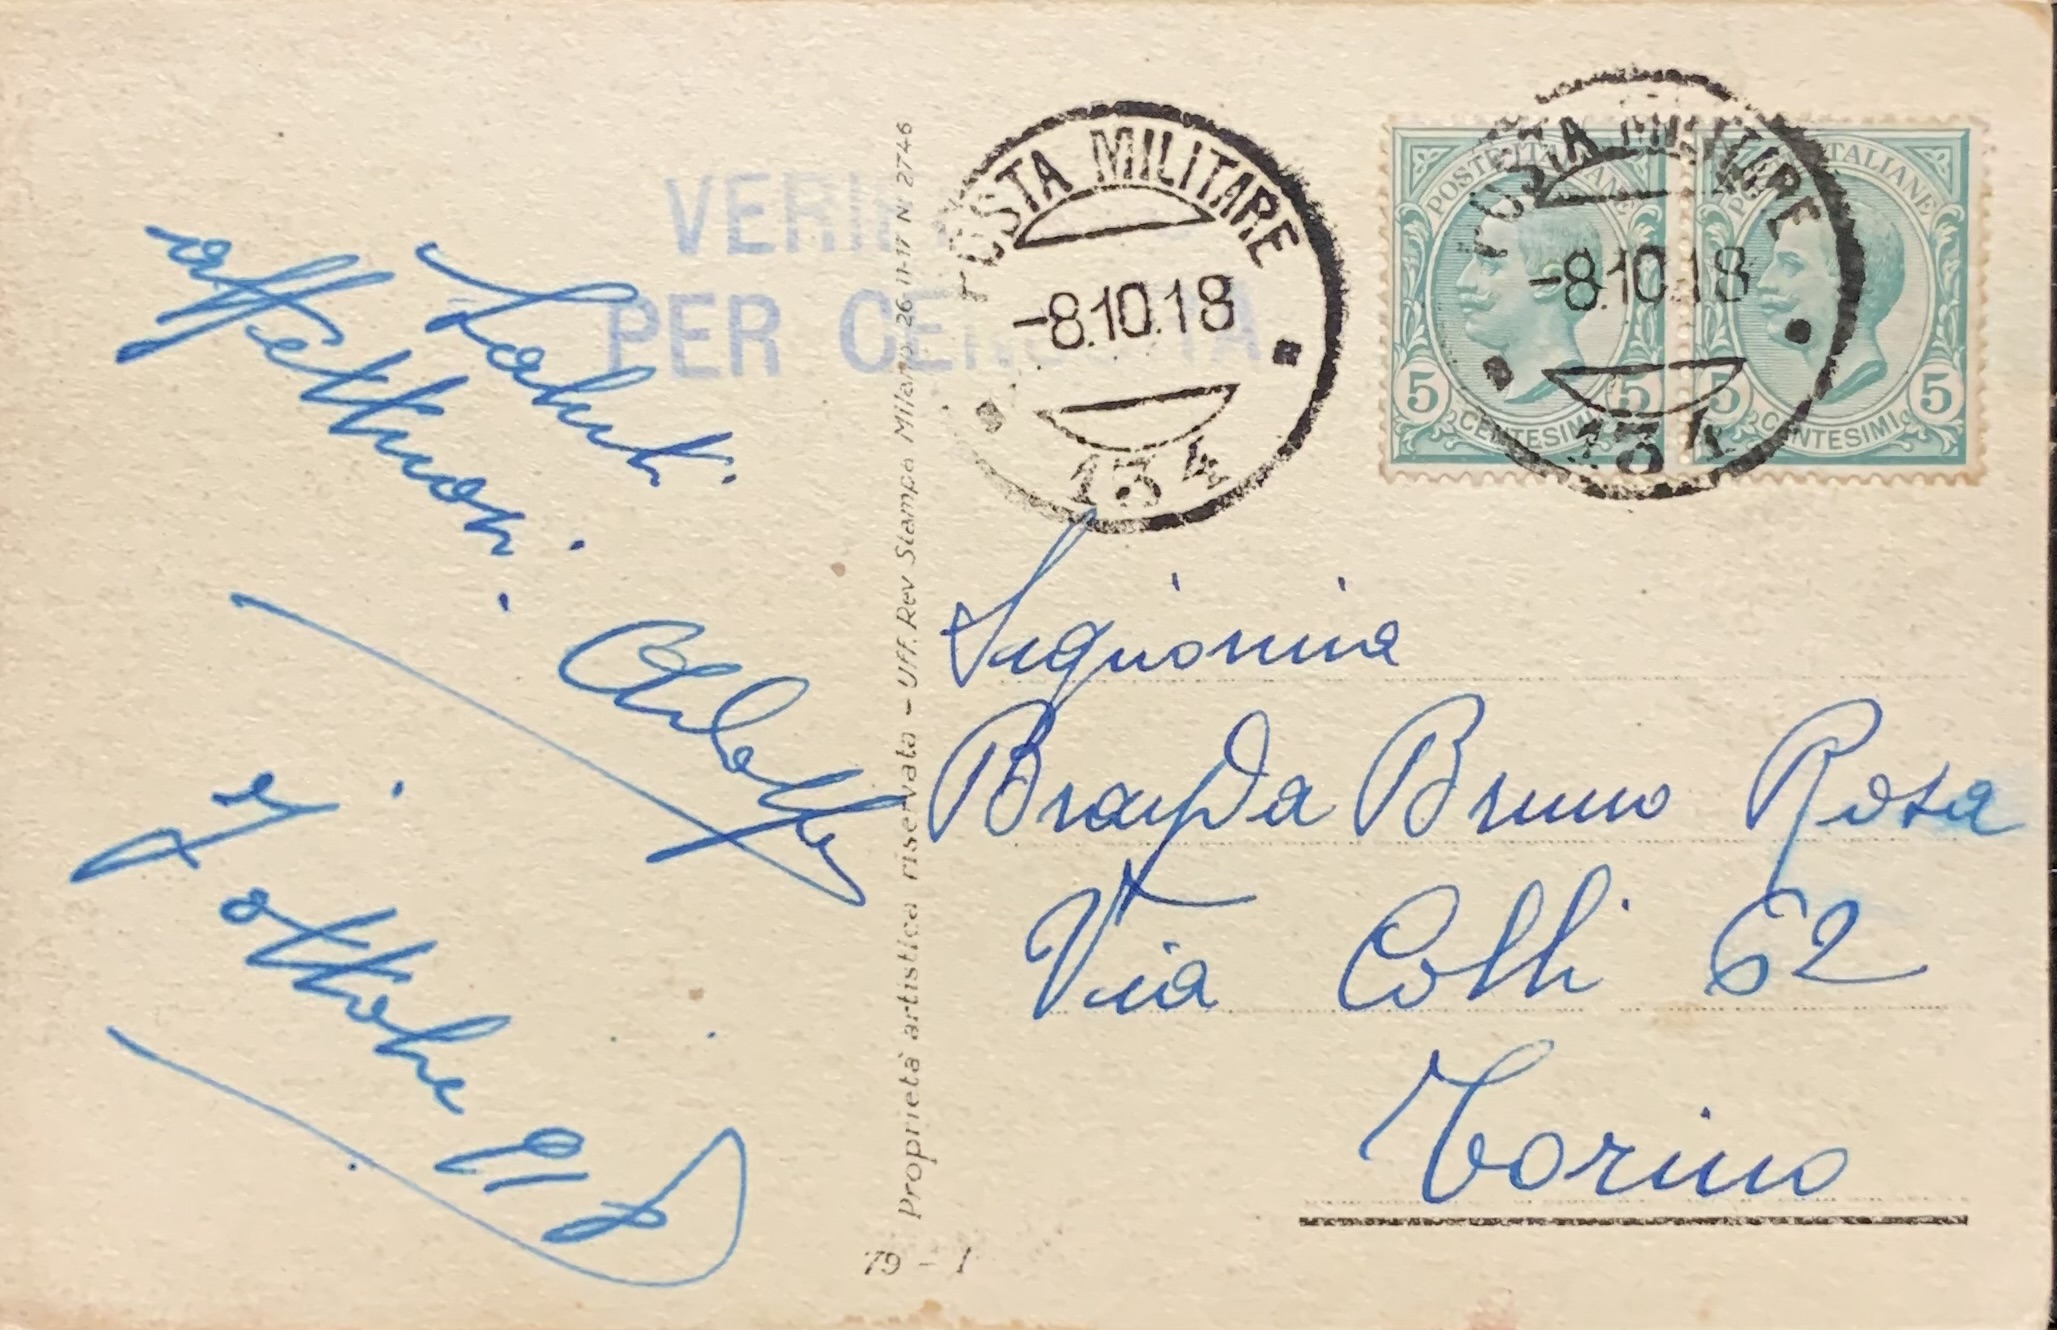 Saluti
affettuosi
7 ottobre 918
VERIFICATO
PER CENSURA
Proprietà artistica riservata - Uff. Rev Stampa Milano 26-11-17 N 2746
79 - 1
POSTA MILITARE
-8.10.18
134
POSTE ITALIANE
5 5
CENTESIMI
POSTE ITALIANE
5 5
CENTESIMI
POSTA MILITARE
-8.10.18
134
Signorina
Brayda Bruno Rosa
Via Colli 62
Torino